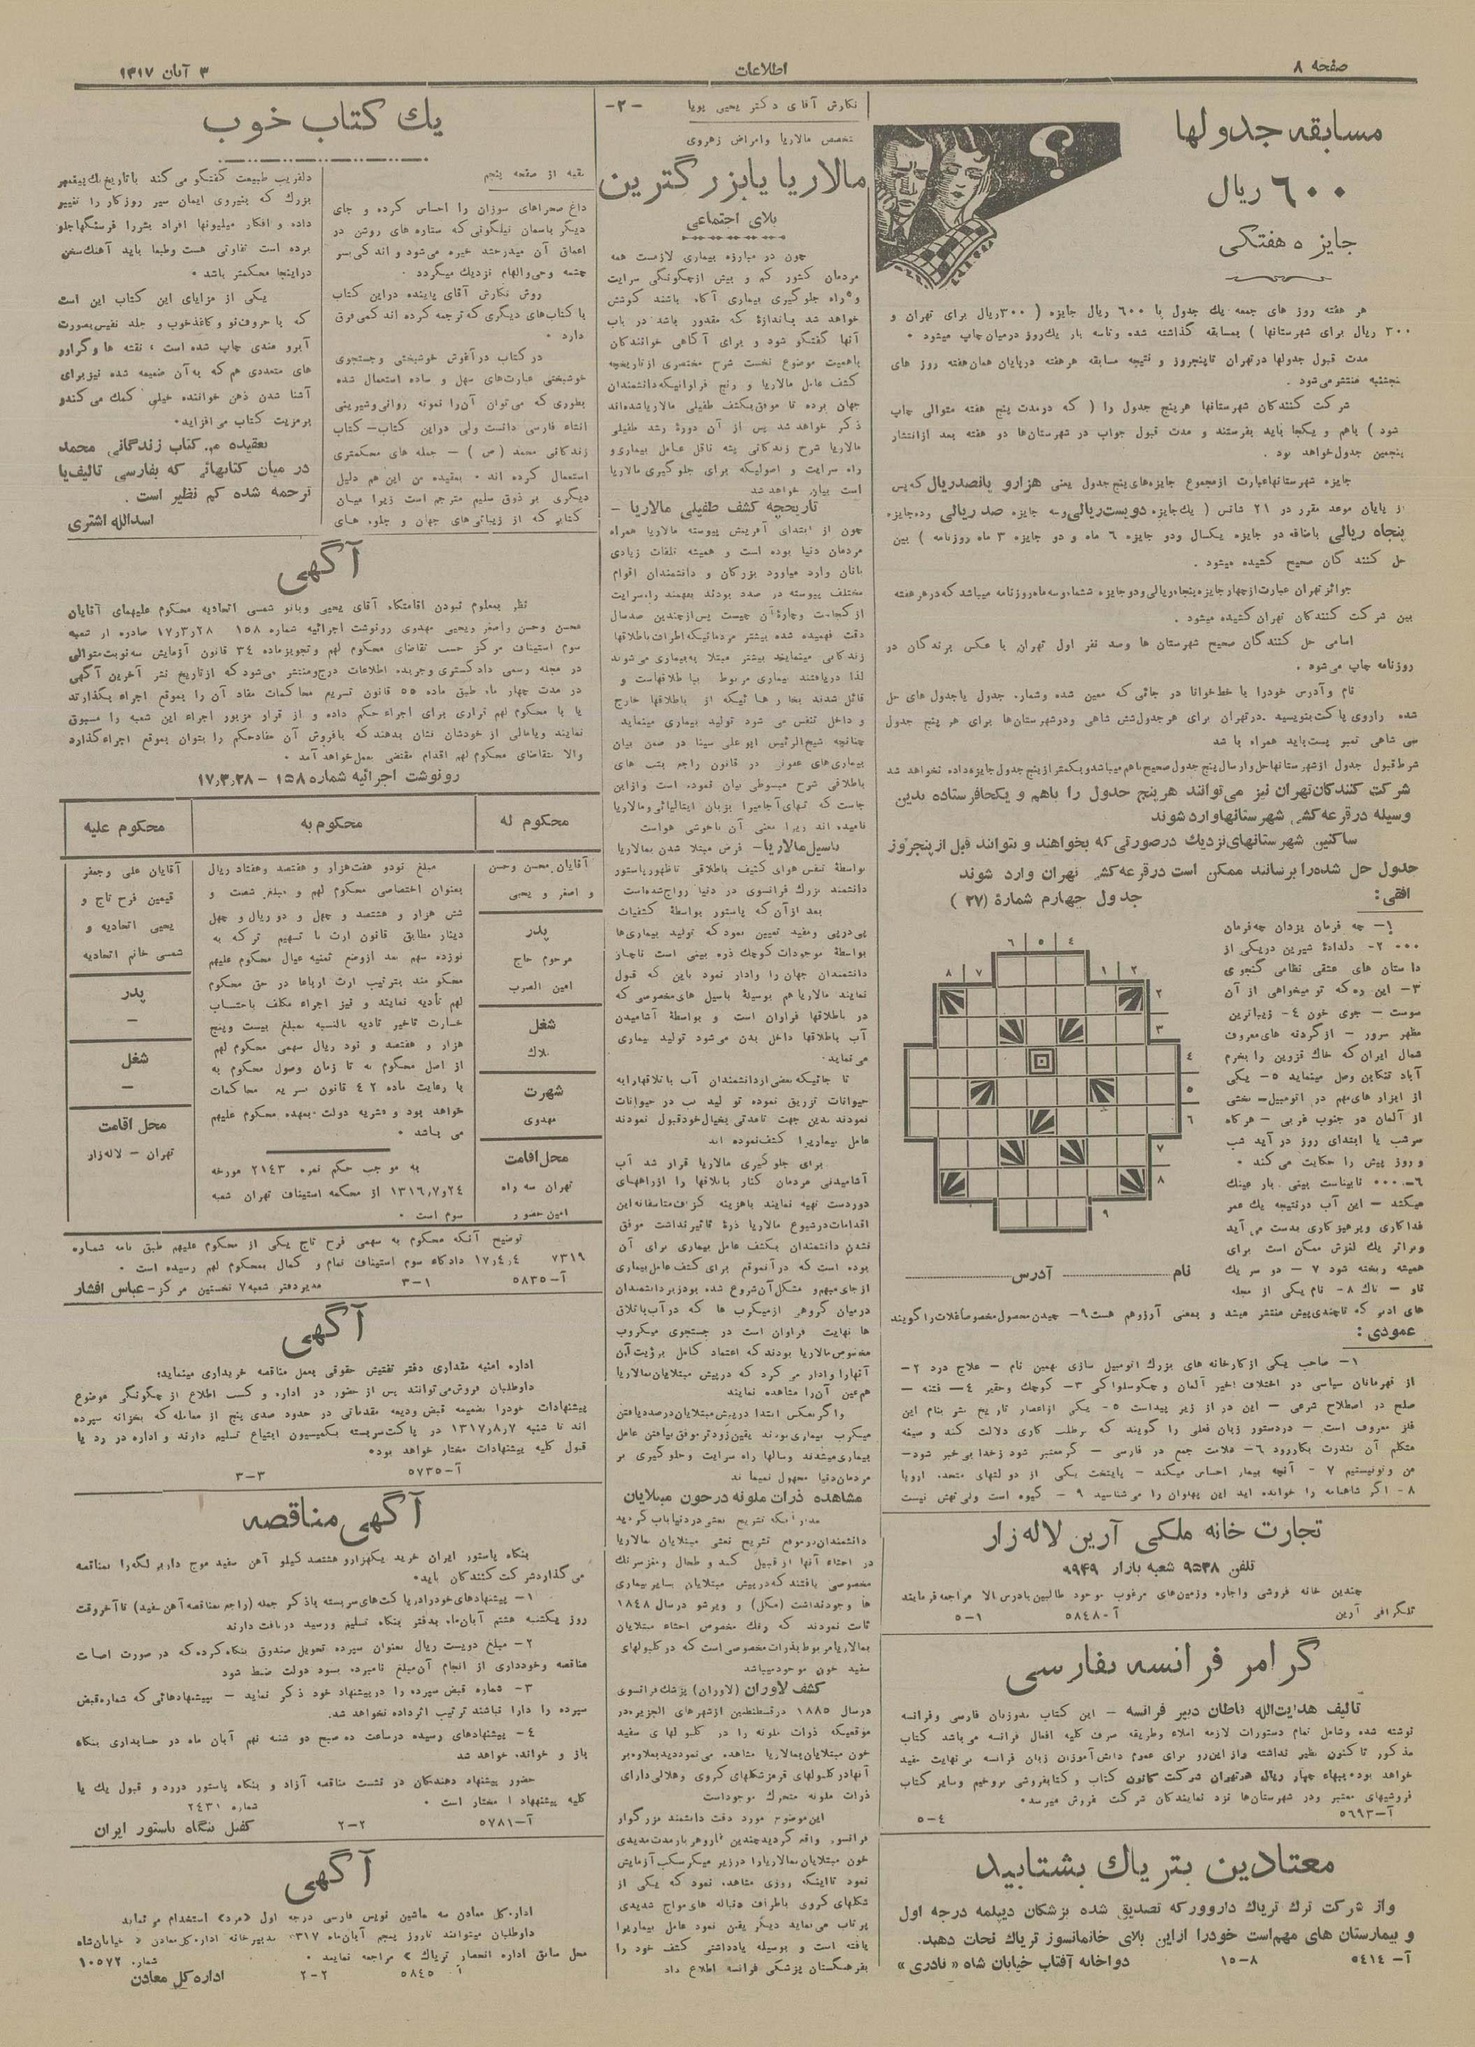 صفحه ۸
اطلاعات
۳ آبان ۱۳۱۷
مسابقه جدولها
۶۰۰ ریال
جایزه هفتگی
هر هفته روز های جمعه یك جدول با ۶۰۰ ریال جایزه ( ۳۰۰ریال برای تهران و
۳۰۰ ریال برای شهرستانها ) بمسابقه گذاشته شده وتاسه بار یك‌روز درمیان‌چاپ میشود •
مدت قبول جدولها درتهران تاپنجروز و نتیجه مسابقه هرهفته درپایان همان‌هفته روز های
پنجشنبه منتشر می‌شود .
شرکت کنندگان شهرستانها هرپنج جدول را ( که درمدت پنج هفته متوالی چاپ
شود ) باهم و یکجا باید بفرستند و مدت قبول جواب در شهرستان‌ها دو هفته بعد ازانتشار
پنجمین جدول‌خواهد بود .
جایزه شهرستانهاعبارت ازمجموع جایزه‌های‌پنج‌جدول یعنی هزارو پانصدریال که‌پس
از پایان موعد مقرر در ۲۱ شانس ( یك‌جایزه دویست‌ریالی‌وسه جایزه صد ریالی وده‌جایزه
پنجاه ریالی باضافه دو جایزه یکسال ودو جایزه ۶ ماه و دو جایزه ۳ ماه روزنامه ) بین
حل کنند گان صحیح کشیده میشود .
جوائز تهران عبارت ازچهارجایزه پنجاه‌ریالی‌ودوجایزه ششماه‌وسه‌ماه‌روزنامه میباشد که‌درهرهفته
بین شرکت کنندگان تهران‌کشیده میشود .
اسامی حل کنندگان صحیح شهرستان ها وصد نفر اول تهران با عکس برندگان در
روزنامه چاپ می‌شود .
نام وآدرس خودرا با خط‌خوانا در جائی که معین شده وشماره جدول یاجدول های حل
شده راروی پاکت‌بنویسید .درتهران برای هرجدول‌شش شاهی ودرشهرستان‌ها برای هر پنج جدول
سی شاهی تمبر پست‌باید همراه با شد
شرط‌قبول جدول ازشهرستانهاحل‌وارسال پنج جدول صحیح‌باهم‌میباشدوبکمتر ازپنج‌جدول‌جایزه‌داده نخواهد شد
شرکت کنندگان‌تهران نیز می‌توانند هرپنج جدول را باهم و یکجافرستاده بدین
وسیله درقرعه‌کشی شهرستانهاوارد شوند
ساکنین شهرستانهای‌نزدیك درصورتی‌که بخواهند و بتوانند قبل ازپنجروز
جدول حل شده‌را برسانند ممکن است درقرعه‌کشی تهران وارد شوند
جدول چهارم شمارهٔ (۳۷ )
افقی :
۱– چه فرمان یزدان چه‌فرمان
۰۰۰ ۲– دلدادهٔ شیرین دریکی از
داستان های عشقی نظامی گنجوی
۳– این ره‌که تو میخواهی از آن
سوست – جوی خون ۴– زیباترین
مظهر سرور – ازگردنه های‌معروف
شمال ایران‌که خاك قزوین را بخرم
آباد تنکابن وصل مینماید ۵– یکی
از ابزار های‌مهم در اتومبیل– بخشی
از آلمان در جنوب غربی – هرگاه
سرشب یا ابتدای روز در آید شب
و روز پیش را حکایت می کند •
۶–۰۰۰ نابیناست بینی بار عینك
میکشد – این آب درنتیجه یك عمر
فداکاری وپرهیزکاری بدست می آید
وبراثر یك لغزش ممکن است برای
همیشه ریخته شود ۷ – دو سر یك
گاو – تاك ۸– نام یکی از مجله
های ادبی که تاچندی‌پیش منتشر میشد و بمعنی آرزوهم هست۹– چیدن‌محصول‌مخصوصاًغلات‌راگویند
۶ ۵ ۴
۸ ۷ ۱ ۲
۲
۳
۴
۵
۶
۷
۸
۹
نام
آدرس
عمودی :
۱– صاحب یکی ازکارخانه های بزرگ اتومبیل سازی بهمین نام – علاج درد ۲–
از قهرمانان سیاسی در اختلاف اخیر آلمان و چکوسلواکی ۳– کوچك وحقیر ۴– فتنه –
صلح در اصطلاح شرعی – این در از زیر پیداست ۵– یکی ازاعصار تاریخ بشر بنام این
فلز معروف است – دردستور زبان فعلی را گویند که برطلب کاری دلالت کند و صیغه
متکلم آن بندرت بکاررود ۶– علامت جمع در فارسی – گرمعتبر شود زخدا بی خبر شود–
من وتونیستیم ۷ – آنچه بیمار احساس میکند – پایتخت یکی از دولتهای متحده اروپا
۸– اگر شاهنامه را خوانده اید این پهلوان را می‌شناسید ۹ – گیوه است ولی‌تهش نیست
تجارت خانه ملکی آرین لاله‌زار
تلفن ۹۵۳۸ شعبه بازار ۹۹۴۹
چندین خانه فروشی واجاره وزمین‌های مرغوب موجود طالبین بادرس بالا مراجعه فرمایند
تلگرافی آرین آ–۵۸۴۸ ۱–۵
گرامر فرانسه بفارسی
تألیف هدایت‌الله ناطان دبیر فرانسه – این کتاب بدوزبان فارسی وفرانسه
نوشته شده وشامل تمام دستورات لازمه املاء وطریقه صرف کلیه افعال فرانسه می‌باشد کتاب
مذکور تاکنون نظیر نداشته واز این‌رو برای عموم دانش‌آموزان زبان فرانسه بی‌نهایت مفید
خواهد بود•ببهاء چهار ریال درتهران شرکت کانون کتاب و کتابفروشی بروخیم وسایر کتاب
فروشیهای معتبر ودر شهرستان‌ها نزد نمایندگان شرکت فروش میرسد•
آ–۵۶۹۳ ۴–۵
معتادین بتریاك بشتابید
واز شرکت ترك تریاك داروور که تصدیق شده پزشکان دیپلمه درجه اول
و بیمارستان های مهم‌است خودرا ازاین بلای خانمانسوز تریاك نجات دهید.
آ– ۵۴۱۴ ۸–۱۵ دواخانه آفتاب خیابان شاه « نادری »
نگارش آقای دکتر یحیی پویا –۲–
تخصص مالاریا وامراض زهروی
مالاریا یابزرگترین
بلای اجتماعی
چون در مبارزه بیماری لازمست همه
مردمان کشور کم و بیش ازچگونگی سرایت
وراه جلوگیری بیماری آگاه باشند کوشش
خواهد شد باندازهٔ که مقدور باشد در باب
آنها گفتگو شود و برای آگاهی خوانندگان
باهمیت موضوع نخست شرح مختصری ازتاریخچه
کشف عامل مالاریا و رنج فراوانیکه‌دانشمندان
جهان برده تا موفق‌بکشف طفیلی مالاریاشده‌اند
ذکر خواهد شد پس از آن دورهٔ رشد طفیلی
مالاریا شرح زندگانی پشه ناقل عامل بیماری‌و
راه سرایت و اصولیکه برای جلوگیری مالاریا
است بیان خواهد شد
تاریخچه کشف طفیلی مالاریا –
چون از ابتدای آفرینش پیوسته مالاریا همراه
مردمان دنیا بوده است و همیشه تلفات زیادی
بانان وارد میاورد بزرگان و دانشمندان اقوام
مختلف پیوسته در صدد بودند بفهمند راه‌سرایت
از کجاست وچارهٔ آن چیست پس‌ازچندین صدسال
دقت فهمیده شده بیشتر مردمانیکه‌اطراف‌باطلاقها
زندگانی مینمایند بیشتر مبتلا به‌بیماری می‌شوند
لذا دریافتند بیماری مربوط ببا طلاقهاست و
قائل شدند بخا ر هائیکه از باطلاقها خارج
و داخل تنفس می شود تولید بیماری مینماید
چنانچه شیخ‌الرئیس ابوعلی سینا در ضمن بیان
بیماری‌های عفونی در قانون راجع بتب های
باطلاقی شرح مبسوطی بیان نموده است وازاین
جاست که تبهای آجامیرا بزبان ایتالیائی‌مالاریا
نامیده اند زیرا معنی آن ناخوشی هواست
باسیل‌مالاریا– فرض مبتلا شدن بمالاریا
بواسطهٔ تنفس هوای کثیف باطلاقی تاظهورپاستور
دانشمند بزرگ فرانسوی در دنیا رواج‌شده‌است
بعد ازآن که پاستور بواسطهٔ کشفیات
پی‌درپی ومفید تعیین نمودکه تولید بیماری‌ها
بواسطهٔ موجودات کوچك ذره بینی است ناچار
دانشمندان جهان را وادار نمود باین که قبول
نمایند مالاریاهم بوسیلهٔ باسیل های‌مخصوصی که
در باطلاقها فراوان است و بواسطهٔ آشامیدن
آب باطلاقها داخل بدن می‌شود تولید بیماری
می‌نماید.
تا جائیکه بعضی ازدانشمندان آب باتلاقهارابه
حیوانات تزریق نموده تو لید تب در حیوانات
نمودند بدین جهت تامدتی بخیال‌خودقبول نمودند
عامل بیماریرا کشف‌نموده اند
برای جلو گیری مالاریا قرار شد آب
آشامیدنی مردمان کنار باتلاقها را ازراههای
دوردست تهیه نمایند باهزینه گزاف‌متأسفانه‌این
اقدامات درشیوع مالاریا ذرهٔ تاثیرنداشت موفق
نشدن دانشمندان بکشف عامل بیماری برای آن
بوده است که درآنموقع برای کشف‌عامل‌بیماری
ازجای‌مبهم‌و مشکل‌آن‌شروع شده بودزیردانشمندان
درمیان گروهی ازمیکرب ها که درآب‌باتلاق
ها نهایت فراوان است در جستجوی میکروب
مخصوص‌مالاریا بودندکه اعتماد کامل برؤیت‌آن
آنهاراوادار می کرد که درپیش مبتلایان‌بمالاریا
هم‌عین آن‌را مشاهده نمایند
واگربعکس ابتدا درپیش‌مبتلایان‌درصددیافتن
میکرب بیماری‌بودند یقین‌زودترموفق‌بیافتن عامل
بیماری‌میشدند وسالها راه سرایت وجلوگیری بر
مردمان‌دنیا مجهول نمیما ند
مشاهده ذرات ملونه درخون مبتلایان
بعد ازآنکه تشریح نعشی دردنیاباب گردید
دانشمندان‌درموقع تشریح نعشی مبتلایان بمالاریا
در احشاء آنها ازقبیل کبد و طحال ومغزسررنگ
مخصوصی یافتندکه‌درپیش مبتلایان بسایربیماری
ها وجودنداشت (مکل) و ویرشو درسال ۱۸۴۸
ثابت نمودند که رنگ مخصوص احشاء مبتلایان
بمالاریامربوط‌بذرات‌مخصوصی است که در گلبولهای
سفید خون موجودمیباشد
کشف لاوران (لاوران) پزشك‌فرانسوی
درسال ۱۸۸۵ درقسطنطین ازشهرهای الجزیره‌در
موقعیکه ذرات ملونه را در گلبو لهای سفید
خون مبتلایان‌بمالاریا مشاهده می‌نمود‌دیدبعلاوه‌بر
آنهادرگلبولهای قرمز‌شکلهای کروی وهلالی‌دارای
ذرات ملونه متحرك موجوداست
این‌موضوع مورد دقت دانشمند بزرگوار
فرانسوی واقع گردیدچندین بار‌مدت‌مدیدی
خون مبتلایان‌بمالاریارا درزیر میکرسکپ آزمایش
نمود تااینکه روزی مشاهده نمود که یکی از
شکلهای کروی باطراف دنباله های‌مواج شدیدی
پرتاب می‌نماید دیگر یقین نمود عامل بیماریرا
یافته است و بوسیله یادداشتی کشف خود را
بفرهنگستان پزشکی فرانسه اطلاع داد
یك کتاب خوب
بقیه از صفحه پنجم
داغ صحراهای سوزان را احساس کرده و جای
دیگر باسمان نیلگونی که ستاره های روشن در
اعماق آن میدرخشد خیره می‌شود و اند کی‌بسر
چشمه وحی‌والهام نزدیك میگردد .
روش نگارش آقای پاینده دراین کتاب
با کتاب‌های دیگری که ترجمه کرده اند کمی‌فرق
دارد •
در کتاب درآغوش خوشبختی وجستجوی
خوشبختی عبارت‌های سهل و ساده استعمال شده
بطوری که می‌توان آن‌را نمونه روانی‌وشیرینی
انشاء فارسی دانست ولی دراین کتاب–کتاب
زندگانی محمد (ص ) – جمله های محکمتری
استعمال کرده اند • بعقیده من این هم دلیل
دیگری بر ذوق سلیم مترجم است زیرا میان
کتابی که از زیبائی‌های جهان و جلوه های
دلفریب طبیعت گفتگو می کند باتاریخ یك‌پیغمبر
بزرك که بنیروی ایمان سیر روزگار را تغییر
داده و افکار میلیونها افراد بشررا فرسنگهاجلو
برده است تفاوتی هست وطبعاً باید آهنك‌سخن
دراینجا محکمتر باشد •
یکی از مزایای این کتاب این است
که با حروف‌نو و کاغذخوب و جلد نفیس‌بصورت
آبرو مندی چاپ شده است ، نقشه ها وگراور
های متعددی هم‌که به‌آن ضمیمه شده نیزبرای
آشنا شدن ذهن خواننده خیلی کمك می کند‌و
برمزیت کتاب می‌افزاید•
بعقیده من کتاب زندگانی محمد
در میان کتابهائی که بفارسی تالیف‌یا
ترجمه شده کم نظیر است .
اسدالله اشتری
آگهی
نظر بمعلوم نبودن اقامتگاه آقای یحیی وبانو شمسی اتحادیه محکوم علیهمای آقایان
محسن وحسن واصغر ویحیی مهدوی رونوشت اجرائیه شماره ۱۵۸ ۲۸ر۳ر۱۷ صادره از شعبه
سوم استیناف مرکز حسب تقاضای محکوم لهم وتجویزماده ۳۴ قانون آزمایش سه‌نوبت‌متوالی
در مجله رسمی دادگستری وجریده اطلاعات درج‌ومنتشر می‌شودکه ازتاریخ نشر آخرین آگهی
در مدت چهار ماه طبق ماده ۵۵ قانون تسریع محاکمات مفاد آن را بموقع اجراء بگذارند
یا با محکوم لهم قراری برای اجراء حکم داده و از قرار مزبور اجراء این شعبه را مسبوق
نمایند ویامالی از خودشان نشان بدهند که بافروش آن مفادحکم را بتوان بموقع اجراءگذارد
والا بتقاضای محکوم لهم اقدام مقتضی بعمل‌خواهد آمد •
رونوشت اجرائیه شماره ۱۵۸ – ۲۸ر۳ر۱۷
محکوم له
آقایان محسن وحسن
و اصغر و یحیی
پدر
مرحوم حاج
امین الضرب
شغل
ملاك
شهرت
مهدوی
محل‌اقامت
تهران سه راه
امین حضور
محکوم به
مبلغ نودو هفت‌هزار و هفتصد وهفتاد ریال
بعنوان اختصاصی محکوم لهم و مبلغ شصت و
شش هزار و هشتصد و چهل و دو ریال و چهل
دینار مطابق قانون ارث با تسهیم ترکه به
نوزده سهم بعد ازوضع ثمنیه عیال محکوم علیهم
محکو مند بترتیب ارث ارباعاً در حق محکوم
لهم تأدیه نمایند و نیز اجراء مکلف باحتساب
خسارت تاخیر تادیه بالنسبه بمبلغ بیست وپنج
هزار و هفتصد و نود ریال سهمی محکوم لهم
از اصل محکوم به تا زمان وصول محکوم به
با رعایت ماده ۴۲ قانون سریع محاکمات
خواهد بود و عشریه دولت بعهده محکوم علیهم
می باشد •
به مو جب حکم نمره ۲۱۴۳ مورخه
۲۴ر۷ر۱۳۱۶ از محکمه استیناف تهران شعبه
سوم است •
محکوم علیه
آقایان علی وجعفر
قیمین فرح تاج و
یحیی اتحادیه و
شمسی خانم اتحادیه
پدر
–
شغل
–
محل اقامت
تهران – لاله‌زار
توضیح آنکه محکوم به سهمی فرح تاج یکی از محکوم علیهم طبق نامه شماره
۷۳۱۹ ۴ر۴ر۱۷ دادگاه سوم استیناف تمام و کمال بمحکوم لهم رسیده است •
آ–۵۸۳۵ ۱–۳ مدیردفتر شعبه۷ نخستین مرکز–عباس افشار
آگهی
اداره امنیه مقداری دفتر تفتیش حقوقی بعمل مناقصه خریداری مینماید؛
داوطلبان فروش‌می‌توانند پس از حضور در اداره و کسب اطلاع از چگونگی موضوع
پیشنهادات خودرا بضمیمه قبض ودیعه مقدماتی در حدود صدی پنج از معامله‌که بخزانه سپرده
اند تا شنبه ۱۳۱۷٫۸٫۷ در پاکت‌سربسته بکمیسیون ابتیاع تسلیم دارند و اداره در رد یا
قبول کلیه پیشنهادات مختار خواهد بود•
آ–۵۷۳۵ ۳–۳
آگهی مناقصه
بنگاه پاستور ایران خرید یکهزارو هشتصد کیلو آهن سفید موج دار‌بی لگه‌را بمناقصه
می گذارد‌شرکت کنندگان باید•
۱– پیشنهادهای خودرادر‌پاکت‌های سربسته باذکر جمله (راجع بمناقصه آهن سفید) تاآخروقت
روز یکشنبه هشتم آبان‌ماه بدفتر بنگاه تسلیم ورسید دریافت دارند
۲– مبلغ دویست ریال بعنوان سپرده تحویل صندوق بنگاه‌کرده‌که در صورت اصابت
مناقصه وخودداری از انجام آن‌مبلغ نامبرده بسود دولت ضبط شود
۳– شماره قبض سپرده را درپیشنهاد خود ذکر نماید – بپیشنهادهائی که شماره‌قبض
سپرده را دارا نباشند ترتیب اثرداده نخواهد شد.
۴– پیشنهادهای رسیده درساعت ده صبح دو شنبه نهم آبان ماه در حسابداری بنگاه
باز و خوانده خواهد شد
حضور پیشنهاد دهندگان در نشست مناقصه آزاد و بنگاه پاستور دررد و قبول یك یا
کلیه پیشنهادها مختار است • شماره ۲۴۳۱
آ–۵۷۸۱ ۲–۲ کفیل بنگاه پاستور ایران
آگهی
اداره‌کل معادن سه ماشین نویس فارسی درجه اول «مرد» استخدام می‌نماید
داوطلبان میتوانند تاروز پنجم آبان‌ماه ۳۱۷ بدبیرخانه اداره‌کل‌معادن « خیابان‌شاه
محل سابق اداره انحصار تریاك » مراجعه نمایند • شماره ۱۰۵۷۲
آ ۵۸۴۵ ۲–۲ اداره‌کل معادن